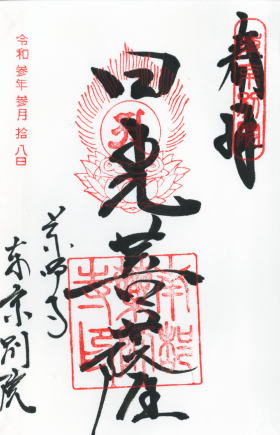 奉拝
日光菩薩
薬師寺
東京別院
令和参年参月拾八日